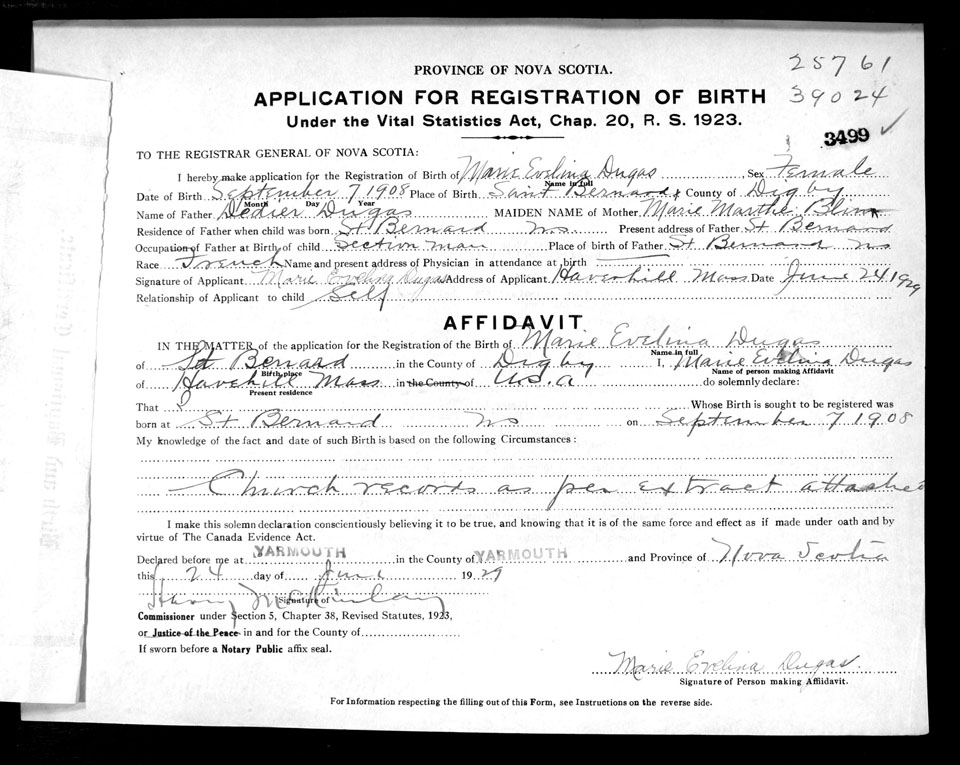 PROVINCE OF NOVA SCOTIA.
25761
APPLICATION FOR REGISTRATION OF BIRTH
39024
Under the Vital Statistics Act, Chap. 20, R. S. 1923.
3499 ✓
TO THE REGISTRAR GENERAL OF NOVA SCOTIA:
I hereby make application for the Registration of Birth of Marie Evelina Dugas Sex Female
Name in full
Date of Birth September 7 1908 Place of Birth Saint Bernard County of Digby
Month Day Year
Name of Father Dedier Dugas MAIDEN NAME of Mother Marie Marthe
Residence of Father when child was born St Bernard NS Present address of Father St Bernard
Occupation of Father at Birth of child Section man Place of birth of Father St Bernard NS
Race French Name and present address of Physician in attendance at birth
Signature of Applicant Marie Evelina Dugas Address of Applicant Haverhill Mass Date June 24 1929
Relationship of Applicant to child Self
AFFIDAVIT
IN THE MATTER of the application for the Registration of the Birth of Marie Evelina Dugas
Name in full
of St Benard in the County of Digby I, Marie Evelina Dugas
Birthplace Name of person making Affidavit
of Havehill Mass in the County of U.S.A do solemnly declare:
Present residence
That I Whose Birth is sought to be registered was
born at St Bernard NS on September 7 1908
My knowledge of the fact and date of such Birth is based on the following Circumstances:
Church records as per extract attached
I make this solemn declaration conscientiously believing it to be true, and knowing that it is of the same force and effect as if made under oath and by
virtue of The Canada Evidence Act.
Declared before me at YARMOUTH in the County of YARMOUTH and Province of Nova Scotia
this 24 day of June 1929
Harry McKinlay
Signature of
Commissioner under Section 5, Chapter 38, Revised Statutes, 1923,
or Justice of the Peace in and for the County of
If sworn before a Notary Public affix seal.
Marie Evelina Dugas.
Signature of Person making Affidavit.
For Information respecting the filling out of this Form, see Instructions on the reverse side.